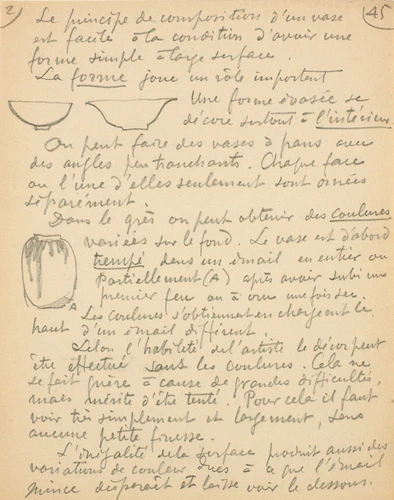 2) 45
Le principe de composition d'un vase
est facile à la condition d'avoir une
forme simple à large surface.
La forme joue un rôle important
Une forme évasée se
décore surtout à l'intérieur
On peut faire des vases à pans avec
des angles peu tranchants. Chaque face
ou l'une d'elles seulement sont ornées
séparément.
Dans le grès on peut obtenir des coulures
variées sur le fond. Le vase est d'abord
trempé dans un émail en entier ou
partiellement (A) après avoir subi un
premier feu ou à cru une fois sec.
A
Les coulures s'obtiennent en chargeant le
haut d'un émail différent.
Selon l'habileté de l'artiste le décor peut
être effectué sous les coulures. Cela ne
se fait guère à cause de grandes difficultés,
mais mérite d'être tenté. Pour cela il faut
voir très simplement et largement, sans
aucune petite finesse.
L'inégalité de la surface produit aussi des
variations de couleur dues à ce que l'émail
mince disparaît et laisse voir le dessous.